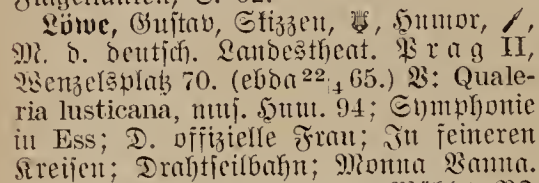 Löwe, Gustav, Skizzen, Humor,
M. d. deutsch. Landestheat. Prag II,
Wenzelsplatz 70. (ebda 22/4 65.) V: Quale-
ria lusticana, mus. Hum. 94; Symphonie
in Ess; D. offizielle Frau; In feineren
Kreisen; Drahtseilbahn; Monna Vanna.